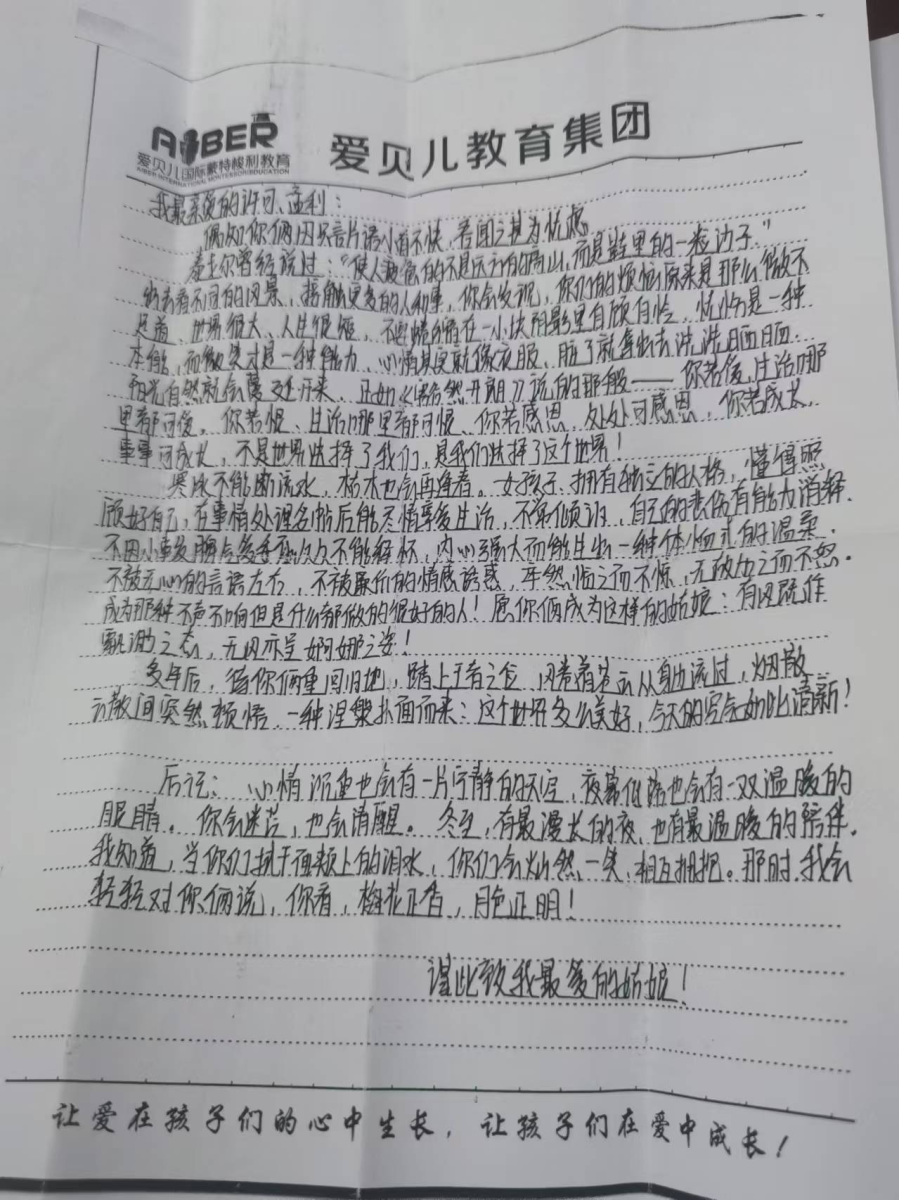 AIBER
爱贝儿国际蒙特梭利教育
AIBER INTERNATIONAL MONTESSORI EDUCATION
爱贝儿教育集团
我最亲爱的许可、孟利：
偶知你俩因只言片语小有不快，吾闻之甚为忧虑。
泰戈尔曾经说过：“使人疲惫的不是远方的高山，而是鞋里的一粒沙子”
出去看不同的风景、接触更多的人和事，你会发现，你们的烦恼原来是那么微不
足道，世界很大、人生很短，不要蜷缩在一小块阴影里自顾自怜，忧伤是一种
本能，而微笑才是一种能力，心情其实就像衣服，脏了就拿出去洗洗晒晒，
阳光自然就会蔓延开来，正如《豁然开朗》说的那般——你若傻，生活哪
里都可傻。你若恨、生活哪里都可恨、你若感恩，处处可感恩，你若成长，
事事可成长，不是世界选择了我们，是我们选择了这个世界！
寒风不能断流水，枯木也会再逢春。女孩子，拥有独立的人格，懂得照
顾好自己，在事情处理妥当后能尽情享受生活，不常倾诉，自己的悲伤有能力消释，
不因小事发脾气，内心强大而能生出一种体恤式的温柔，
不被无心的言语左右，不被廉价的情感诱惑，卒然临之而不惊，无故加之而不怒。
成为那种不声不响但是什么都做的很好的人！愿你俩成为这样的姑娘：有风既作
飘摇之态，无风亦呈婀娜之姿！
多年后，待你俩重回旧地，踏上王者之位，风卷着岁云从身边流过，烟散
云散间突然顿悟，一种涅槃扑面而来：这个世界多么美好，今天的空气如此清新！
后记：心情沉重也会有一片宁静的天空，夜幕低落也会有一双温暖的
眼睛。你会迷茫，也会清醒。冬至，有最漫长的夜，也有最温暖的陪伴。
我知道，当你们拭干面颊上的泪水，你们会灿然一笑，相互拥抱。那时，我会
轻轻对你俩说，你看，梅花正香，月色正明！
谨此致我最爱的姑娘！
让爱在孩子们的心中生长，让孩子们在爱中成长！